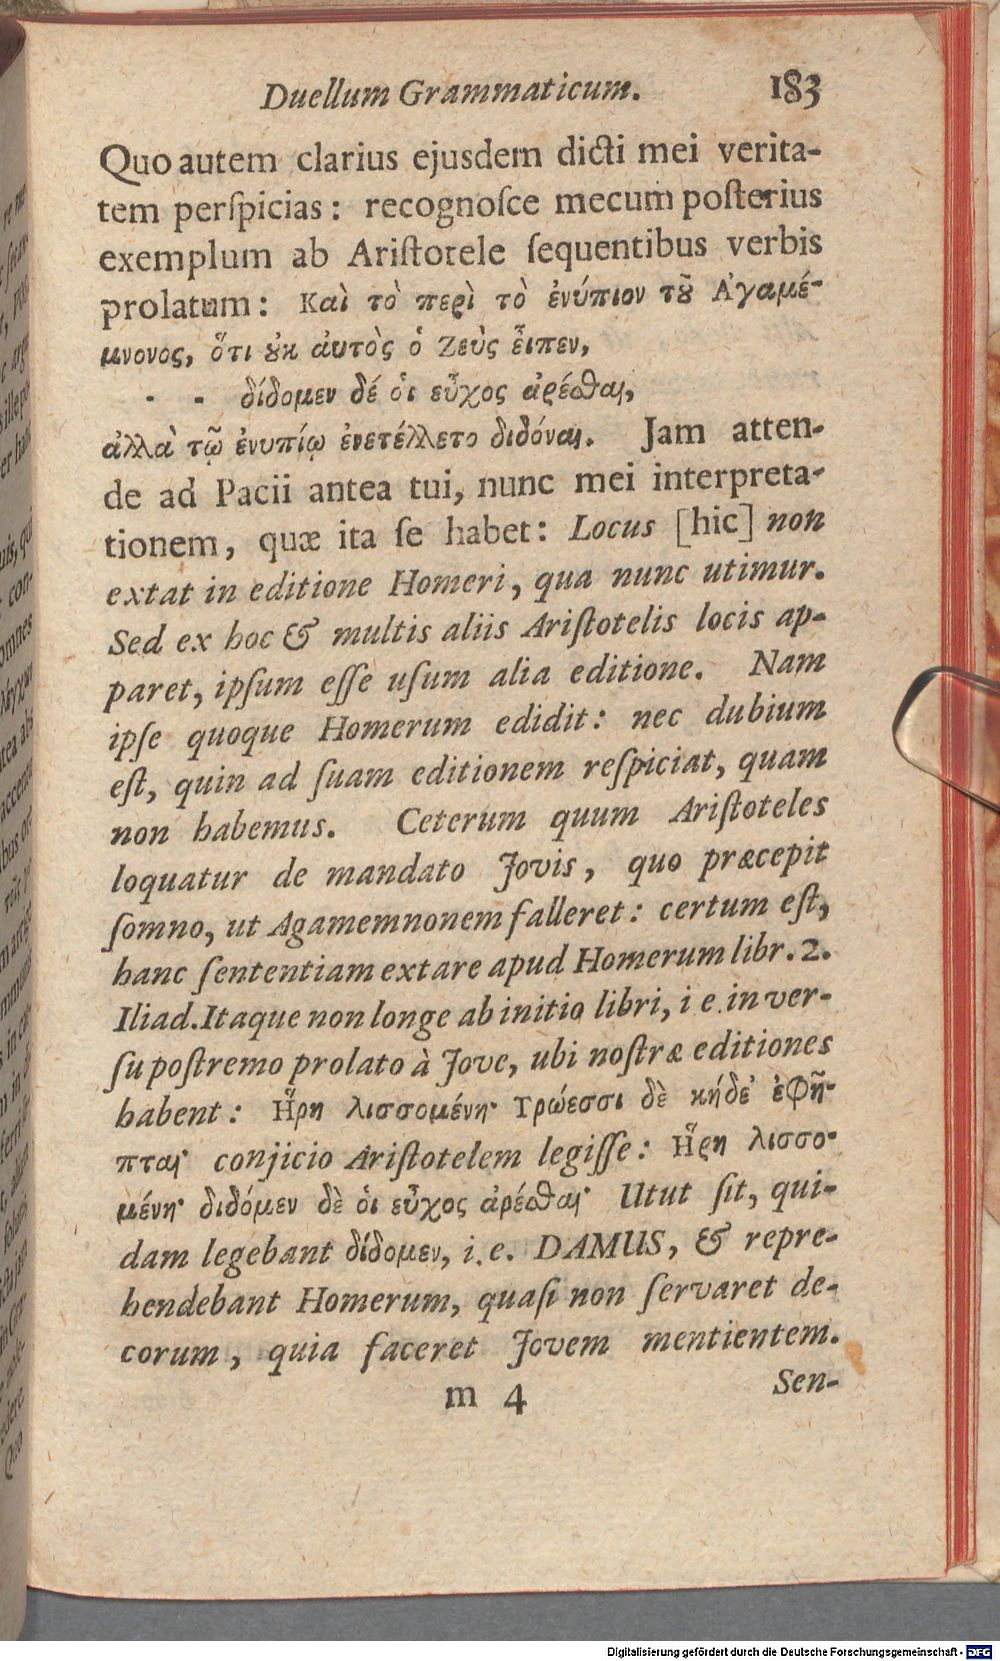 Duellum Grammaticum. 183
Quo autem clarius ejusdem dicti mei verita-
tem perſpicias: recognoſce mecum poſterius
exemplum ab Ariſtotele ſequentibus verbis
prolatum: Καὶ τὸ περὶ τὸ ἐνύπιον τȣ͂ Ἀγαμέ-
μνονος, ὅτι ȣ̓κ ἀυτὸς ὁ Ζεὺς εἶπεν,
- - δίδομεν δέ ὁι εὖχος ἀρέσθαι,
ἀλλὰ τῷ ἐνυπίῳ ἐνετέλλετο διδόναι. Jam atten-
de ad Pacii antea tui, nunc mei interpreta-
tionem, quæ ita ſe habet: Locus [hic] non
extat in editione Homeri, qua nunc utimur.
Sed ex hoc & multis aliis Ariſtotelis locis ap-
paret, ipſum eſſe uſum alia editione. Nam
ipſe quoque Homerum edidit: nec dubium
eſt, quin ad ſuam editionem reſpiciat, quam
non habemus. Ceterum quum Ariſtoteles
loquatur de mandato Jovis, quo præcepit
ſomno, ut Agamemnonem falleret: certum eſt,
hanc ſententiam extare apud Homerum libr. 2.
Iliad. Itaque non longe ab initio libri, i e. in ver-
ſu poſtremo prolato à Jove, ubi noſtræ editiones
habent: Ἥρη λισσομένη· Τρώεσσι δὲ κήδε' ἐφῆ-
πται· conjicio Ariſtotelem legiſſe: Ἥρη λισσο-
μένη· διδόμεν δὲ ὁι εὖχος ἀρέσθαι· Utut ſit, qui-
dam legebant δίδομεν, i. e. DAMUS, & repre-
hendebant Homerum, quaſi non ſervaret de-
corum, quia faceret Jovem mentientem.
m 4 Sen-
Digitalisierung gefördert durch die Deutsche Forschungsgemeinschaft - DFG